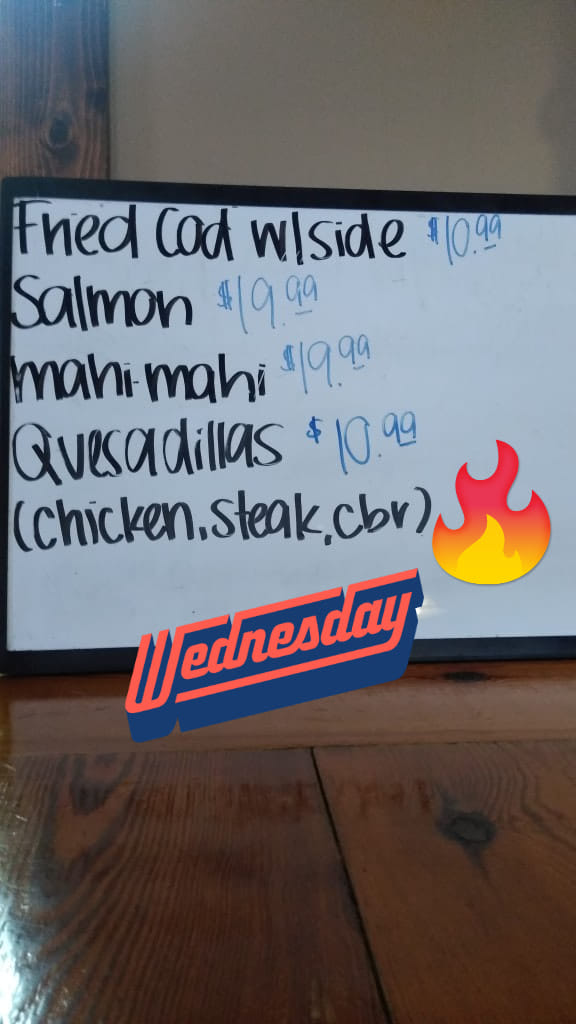 Fried Cod w/side $10.99
Salmon $19.99
mahi-mahi $19.99
Quesadillas $10.99
(chicken, steak, cbr)
Wednesday